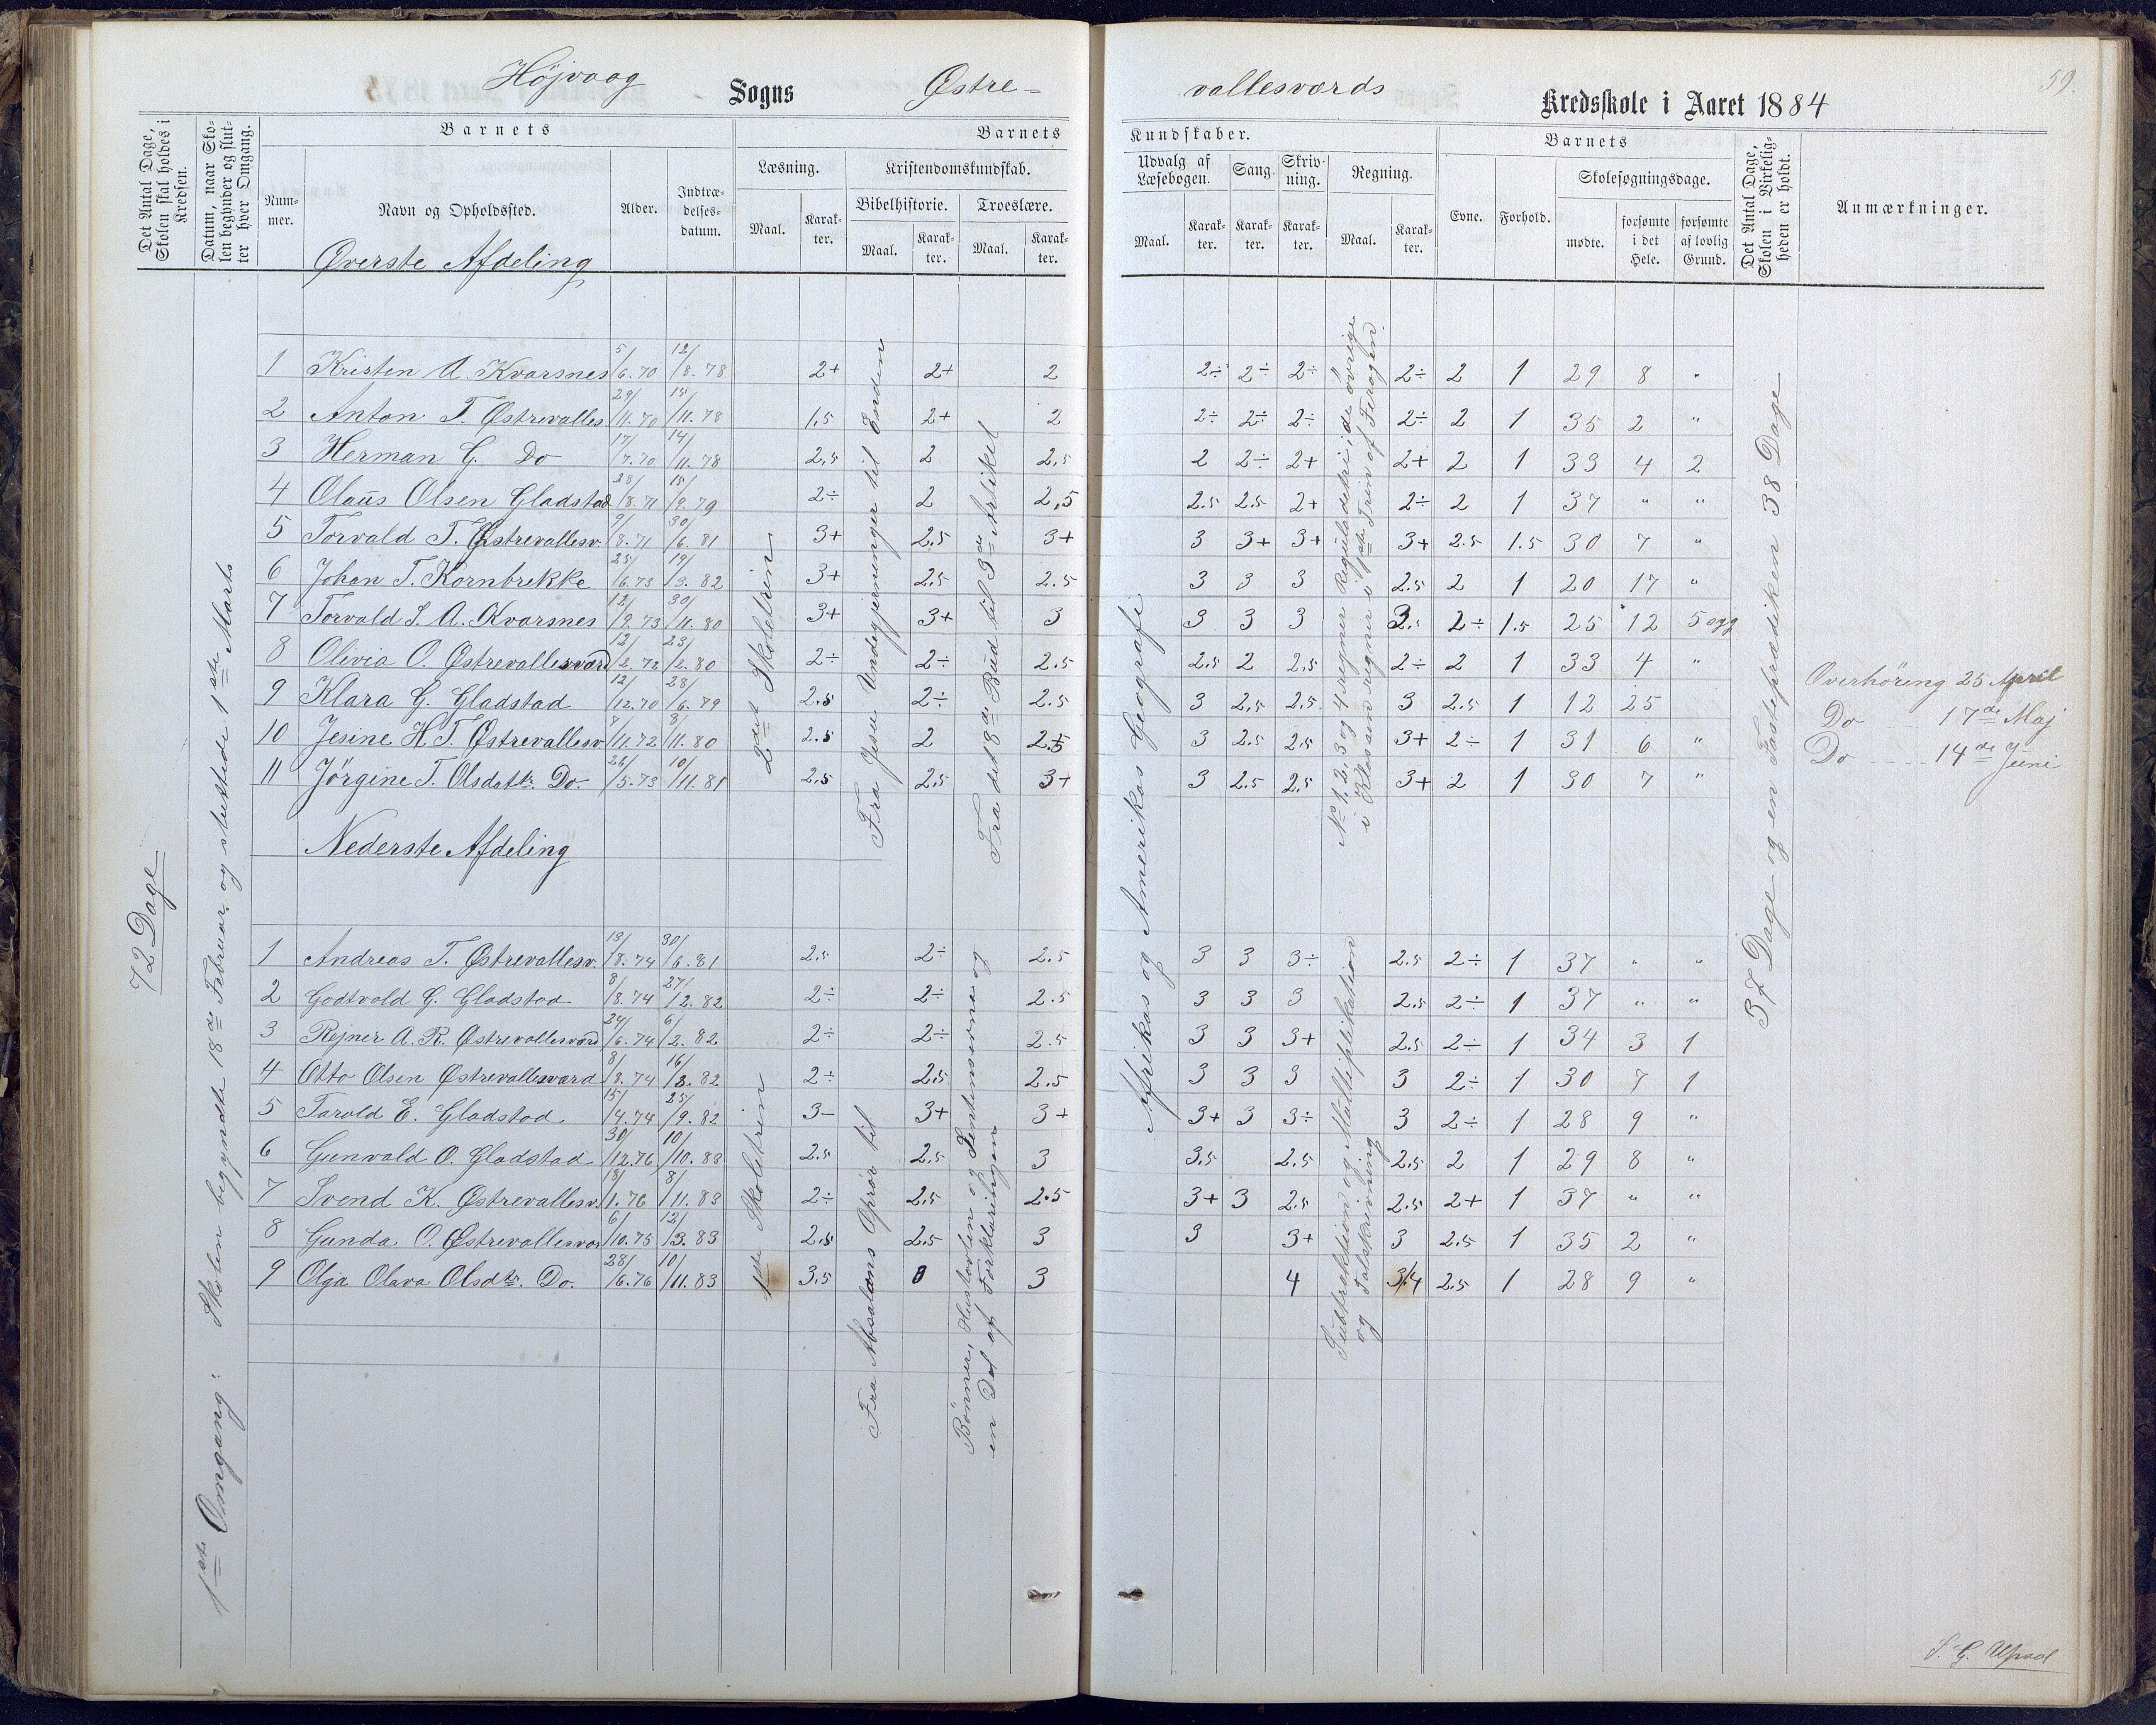 59.
Højvaag Sogns Østre- vallesværds Kredsskole i Aaret 1884
Det Antal Dage, Skolen skal holdes i Kredsen.
Datum, naar Skolen begynder og slutter hver Omgang.
Barnets
Nummer.
Navn og Opholdssted.
Alder.
Indtrædelsesdatum.
Barnets Kundskaber.
Læsning.
Maal.
Karakter.
Kristendomskundskab.
Bibelhistorie.
Maal.
Karakter.
Troeslære.
Maal.
Karakter.
Udvalg af Læsebogen.
Maal.
Karakter.
Sang.
Karakter.
Skrivning.
Karakter.
Regning.
Maal.
Karakter.
Barnets
Evne.
Forhold.
Skolesøgningsdage.
mødte.
forsømte i det Hele.
forsømte af lovlig Grund.
Det Antal Dage, Skolen i Virkeligheden er holdt.
Anmærkninger.
72 Dage
1ste Omgang: Skolen begyndte 18de Februar og sluttede 1ste Marts
Øverste Afdeling
1 Kristen A. Kvarsnes 5/6.70 12/8.78 2+ 2+ 2 2÷ 2÷ 2÷ 2÷ 2 1 29 8 "
2 Anton T. Østrevalles 29/11.70 15/11.78 1,5 2+ 2 2÷ 2÷ 2÷ 2÷ 2 1 35 2 "
3 Herman G. Do 17/7.70 14/11.78 2,5 2 2,5 2 2÷ 2+ 2+ 2 1 33 4 2
4 Olaus Olsen Gladstad 28/8.71 15/9.79 2÷ 2 2,5 2.5 2.5 2+ 2÷ 2 1 37 " "
5 Torvald T. Østrevallesv. 9/8.71 30/6.81 3+ 2.5 3+ 3 3+ 3+ 3+ 2.5 1.5 30 7 "
6 Johan T. Kornbrekke 25/6.73 19/3.82 3+ 2.5 2.5 3 3 3 2.5 2 1 20 17 "
7 Torvald S. A. Kvarsnes 12/9.73 30/11.80 3+ 3+ 3 3 3 3 2÷ 1.5 25 12 5
8 Olivia O. Østrevallesværd 12/2.72 23/2.80 2÷ 2÷ 2.5 2.5 2 2.5 2÷ 2 1 33 4 "
9 Klara G. Gladstad 12/12.70 28/6.79 2.5 2÷ 2.5 3 2.5 2.5 3 2.5 1 12 25
10 Jesine H.T. Østrevallesv 7/11.72 8/11.80 2.5 2 2.5 3 2.5 2.5 3+ 2÷ 1 31 6 "
11 Jörgine T. Olsdatt. Do. 26/5.73 10/11.81 2.5 2.5 3+ 3 2.5 2.5 3+ 2 1 30 7 "
2det Skoletrin
Fra Jesu Undergjerninger til Enden
Fra det 18de Bud til 3die Artikel
Afrikas og Amerikas Geografi
No 1, 2, 3 og 4 regner Reguladetri; de øvrige
i Klassen regner i 1ste Trin af Firagen
37 Dage og en Fasteprædiken 38 Dage
Overhöring 25 April
Do 17de Maj
Do 14de Juni
Nederste Afdeling
1 Andreas T. Østrevallesv. 13/8.74 30/6.81 2.5 2÷ 2.5 3 3 3÷ 2.5 2÷ 1 37 " "
2 Godtvald G. Gladstad 8/8.74 27/2.82 2÷ 2÷ 2.5 3 3 3 2.5 2÷ 1 37 " "
3 Rejner A. R. Østrevallesværd 24/6.74 6/2.82. 2÷ 2÷ 2.5 3 3 3+ 2.5 2÷ 1 34 3 1
4 Otto Olsen Østrevallesværd 8/8.74 16/3.82 2÷ 2.5 2.5 3 3 3 3 2÷ 1 30 7 1
5 Tarald E. Gladstad 15/4.74 25/9.82 3- 3+ 3+ 3+ 3 3÷ 3 2÷ 1 28 9 "
6 Gunvald O. Gladstad 30/12.76 10/10.83 2.5 2.5 3 3.5 2.5 2.5 2 1 29 8 "
7 Svend K. Østrevallesv. 18/1.76 8/11.83 2÷ 2.5 2.5 3+ 3 2.5 2.5 2+ 1 37 " "
8 Gunda O. Østrevallesvær 6/10.75 12/3.83 2.5 2.5 3 3 3+ 3 2.5 1 35 2 "
9 Olga Olava Olsdtr. Do. 28/6.76 10/11.83 3.5 0 3 4 3.4 2.5 1 28 9 "
1ste Skoletrin
Fra Absalons Oprør til
Bønner, Hustavlen og Sentenserne og
en Del af Forklaringen
Subtraktion og Multiplikation
og Talskrivning
S. G. Upsal